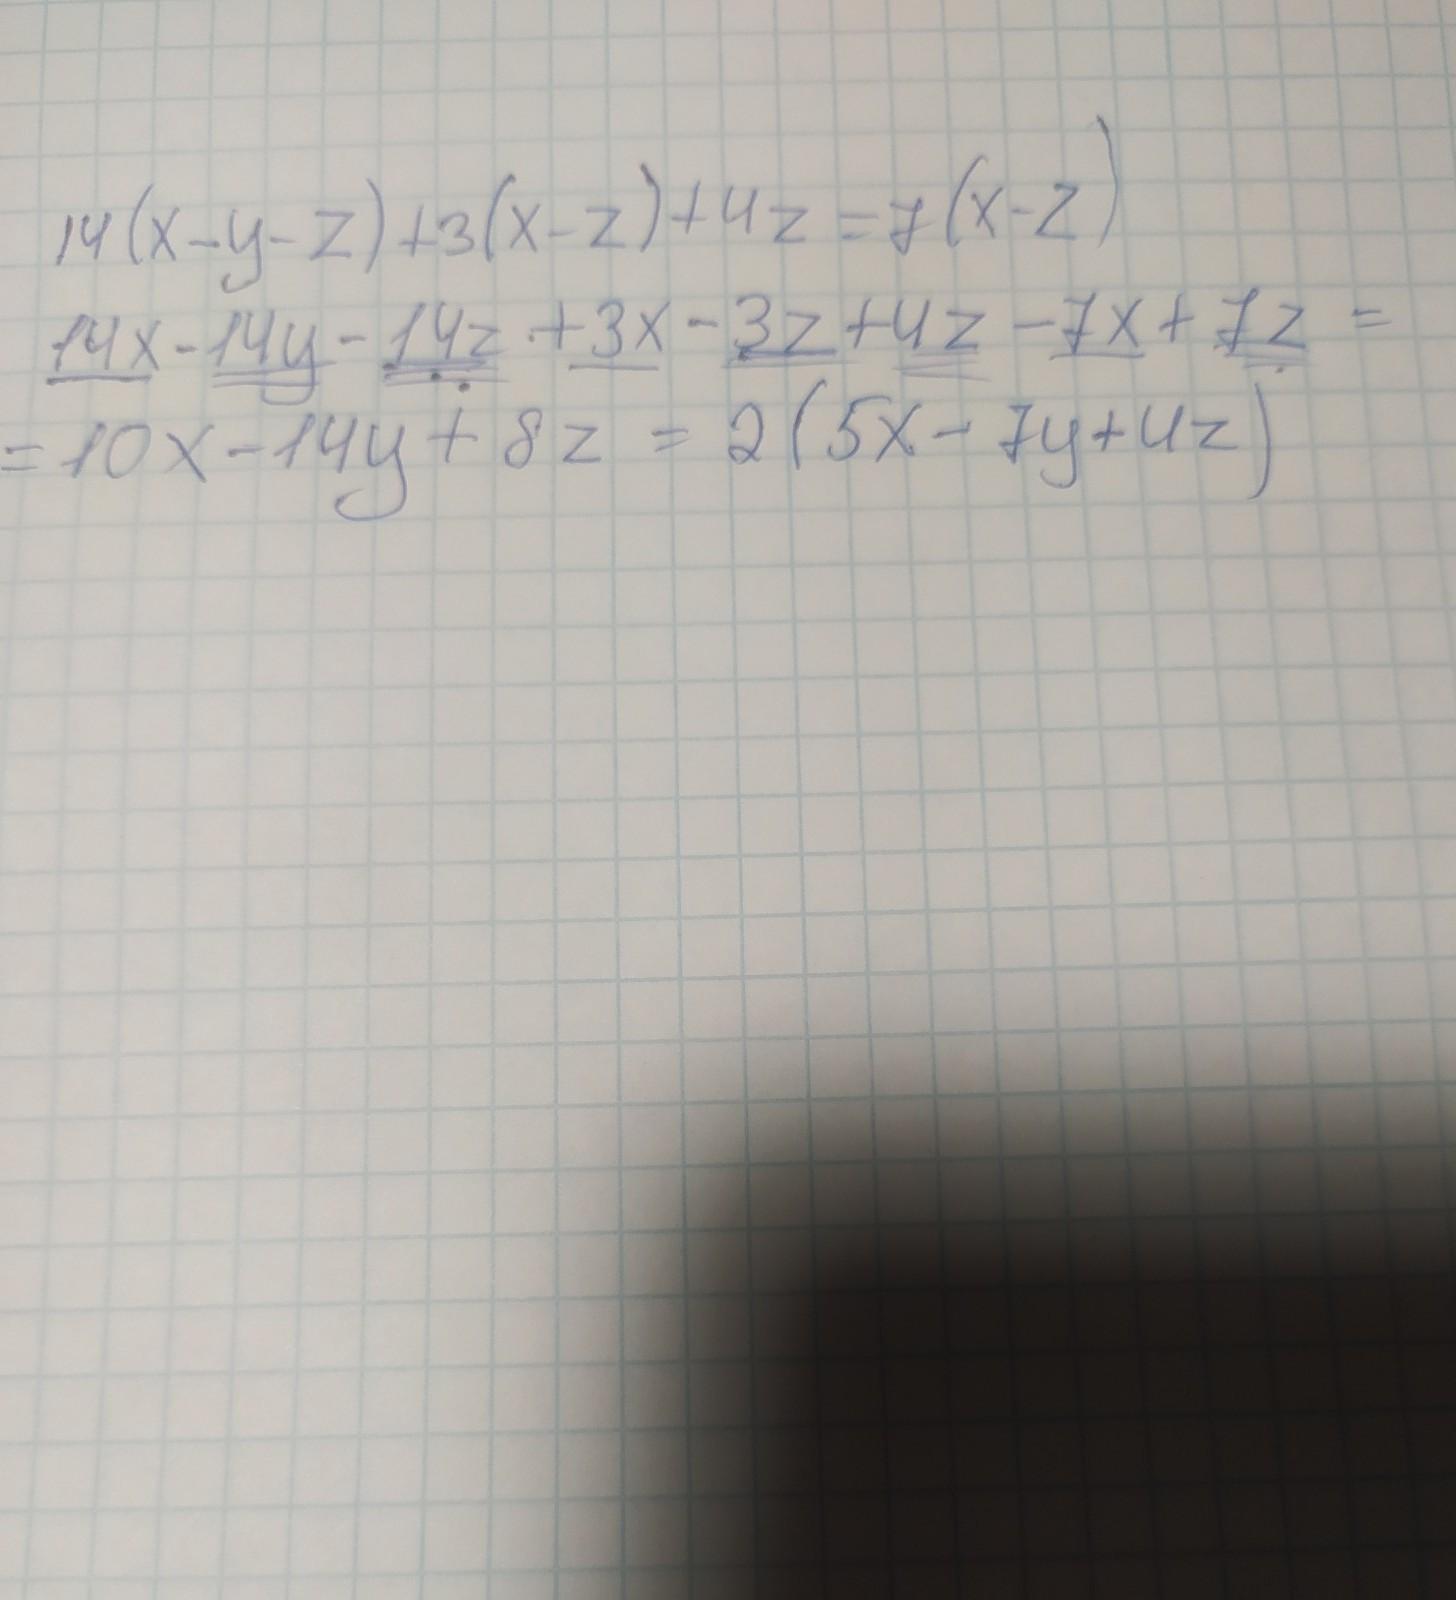 14(x-y-z)+3(x-z)+4z=7(x-z)
14x-14y-14z+3x-3z+4z-7x+7z=
=10x-14y+8z=2(5x-7y+4z)